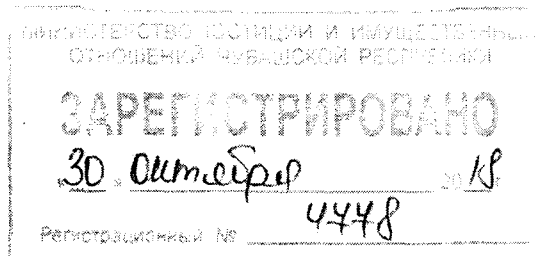 МИНИСТЕРСТВО ЮСТИЦИИ И ИМУЩЕСТВЕННЫХ
ОТНОШЕНИЙ ЧУВАШСКОЙ РЕСПУБЛИКИ
ЗАРЕГИСТРИРОВАНО
"30" октября 2018 г
Регистрационный № 4778